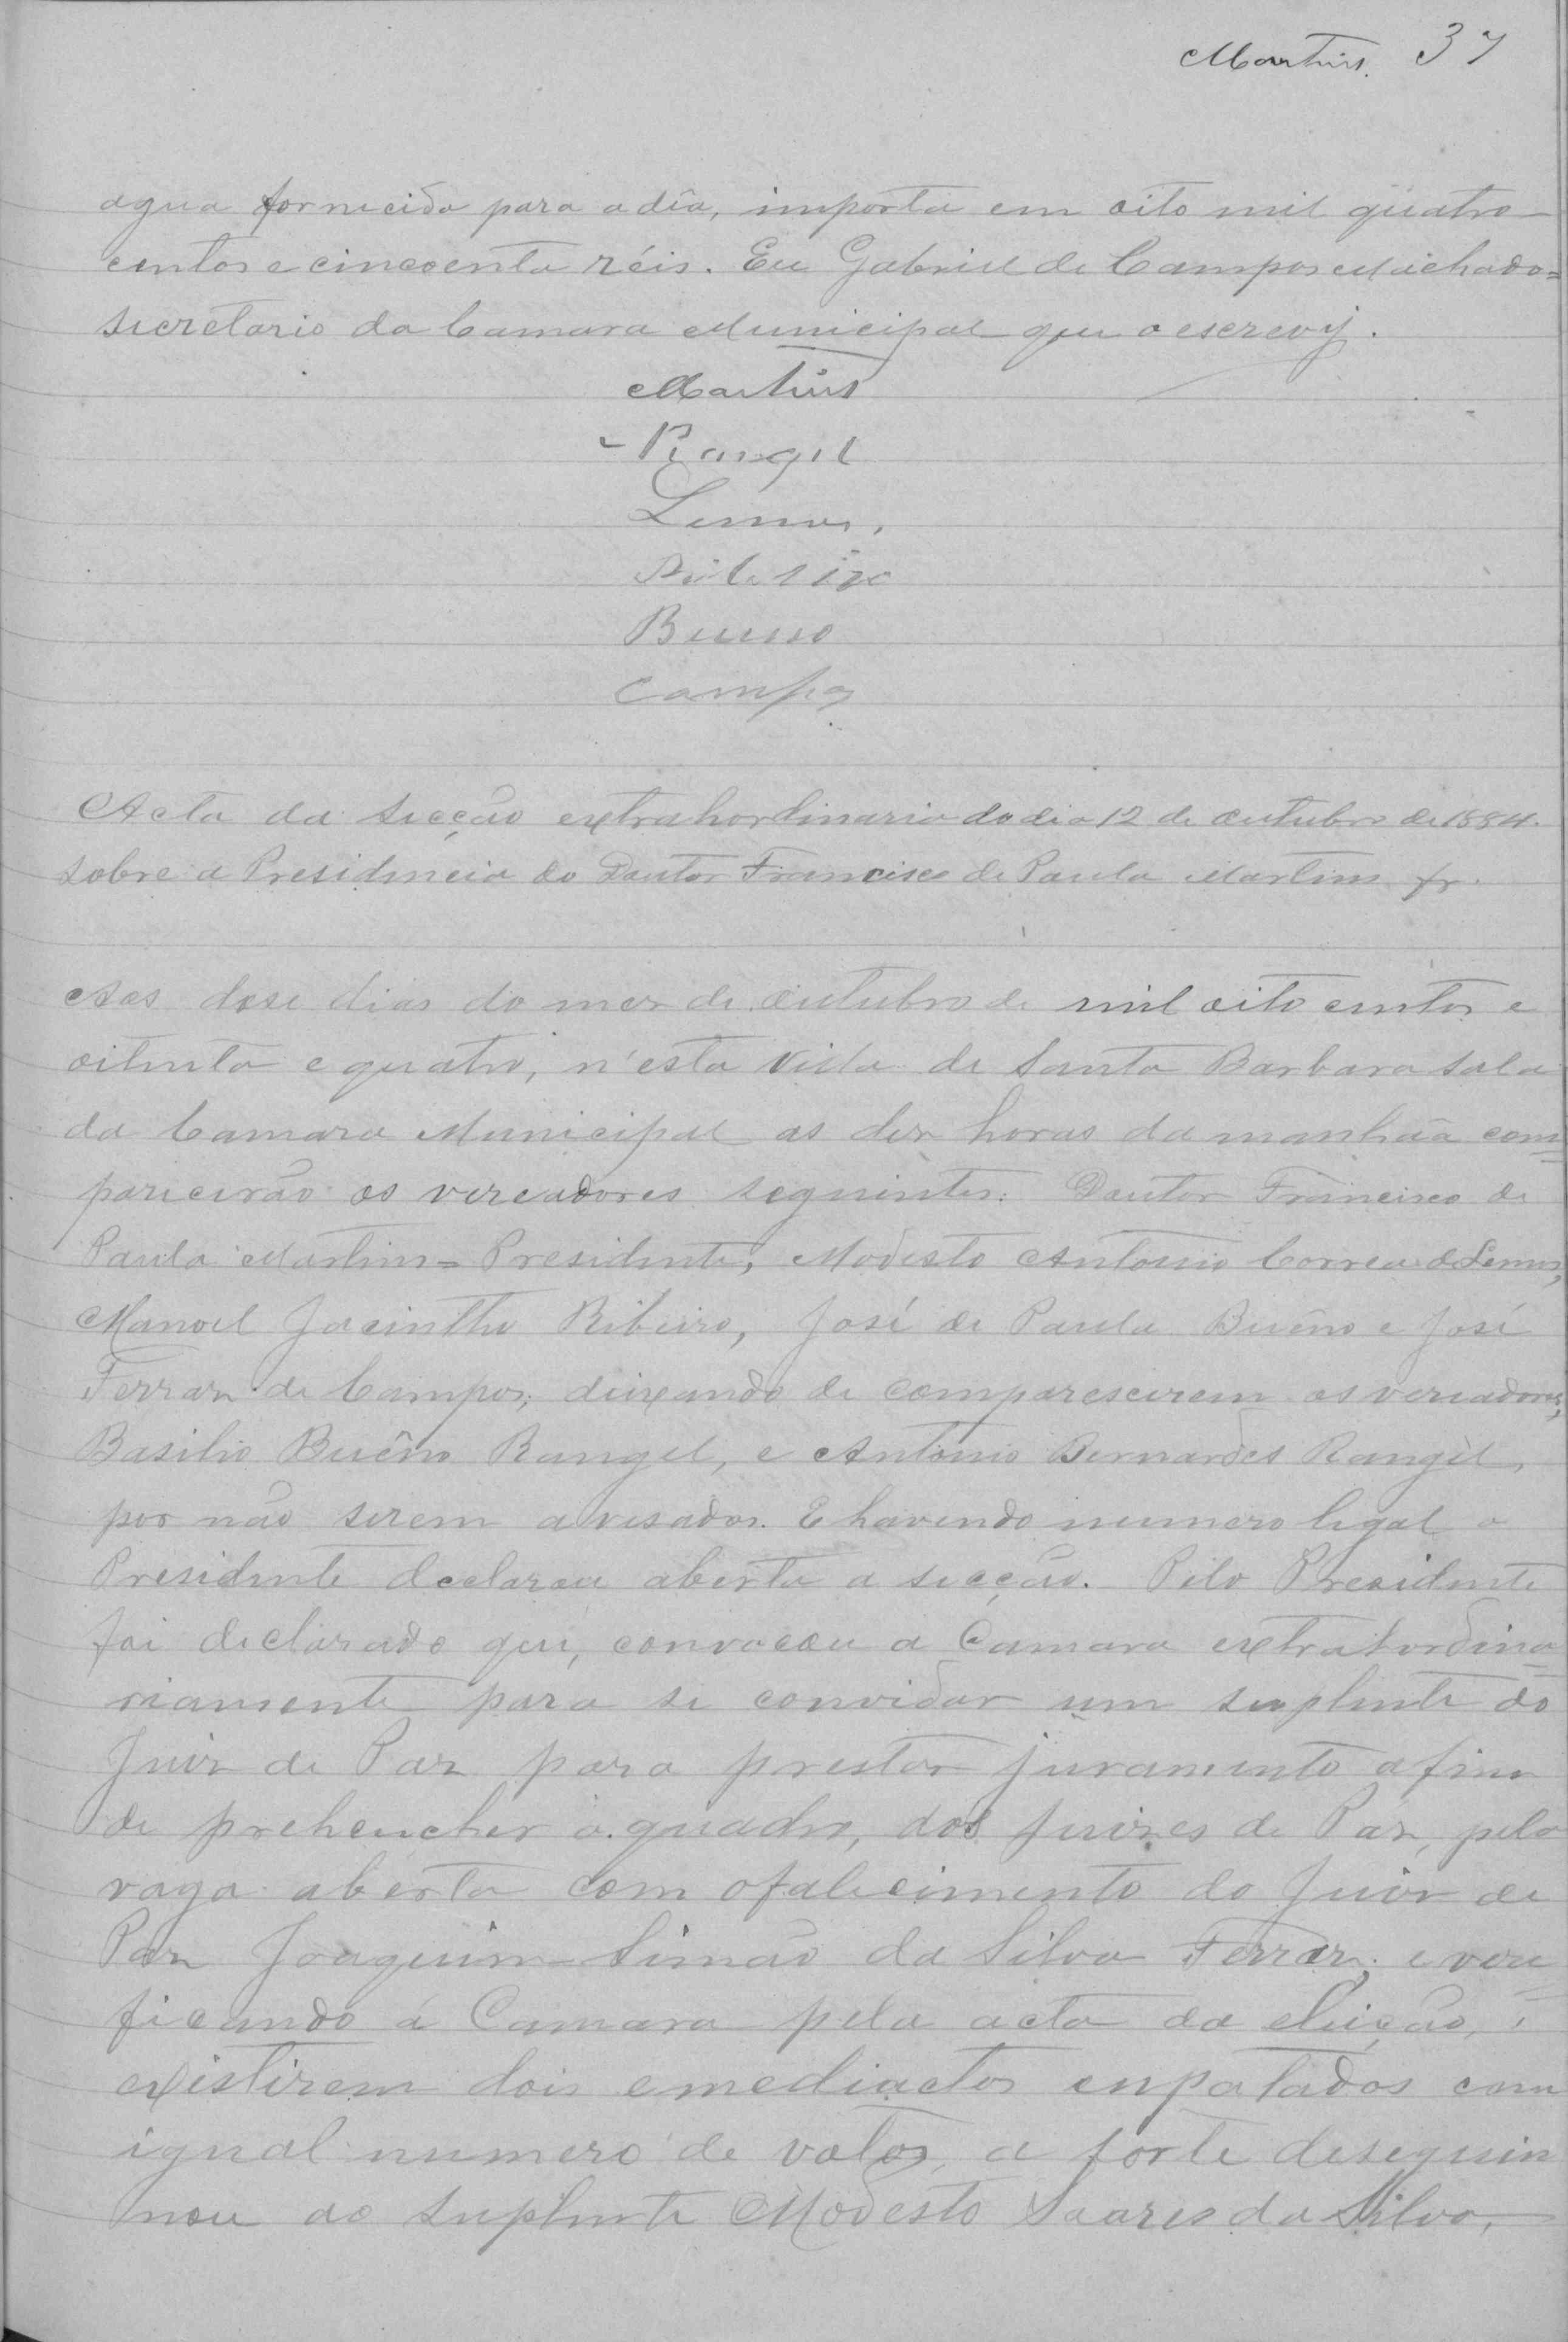 Martins. 37
agua fornecida para a dia, importa em oito mil quatro
centos e cincoenta réis. Eu Gabriel de Campos Machado=
secretario da Camara Municipal que o escrevy.
Martins
Rangel
Lemos.
Bueno
Campos
Acta da secção extrahordinaria do dia 12 de outubro de 1884.
sobre a Presidencia do Doutor Francisco de Paula Martins
Aos dose dias do mes de outubro de mil oito centos e
oitenta e quatro, n'esta Villa de Santa Barbara sala
da Camara Municipal as des horas da manhãa com=
parecerão os vereadores seguintes: Doutor Francisco de
Paula Martins= Presidente, Modesto Antonio Correa de Lemos,
Manoel Jacintho Ribeiro, José de Paula Bueno e José
Ferraz de Campos; deixando de comparescerem os vereadores,
Basilio Buêno Rangel, e Antonio Bernardes Rangel,
por não serem avisados. E havendo numero legal o
Presidente declarou aberta a secção. Pelo Presidente
foi declarado que, convocou a Camara extrahordina
riamente para se convidar um suplente do
Juiz de Paz para prestar juramento afim
de prehencher o quadro, dos Juizes de Paz, pela
vaga aberta com o falecimento do Juiz de
Paz Joaquim Simão da Silva Ferraz; e vere
ficando a Camara pela acta da eleição,
existirem dois emediactos enpatados com
igual numero de votos, a sorte deseguin
nou ao suplente Modesto Soares da Silva,